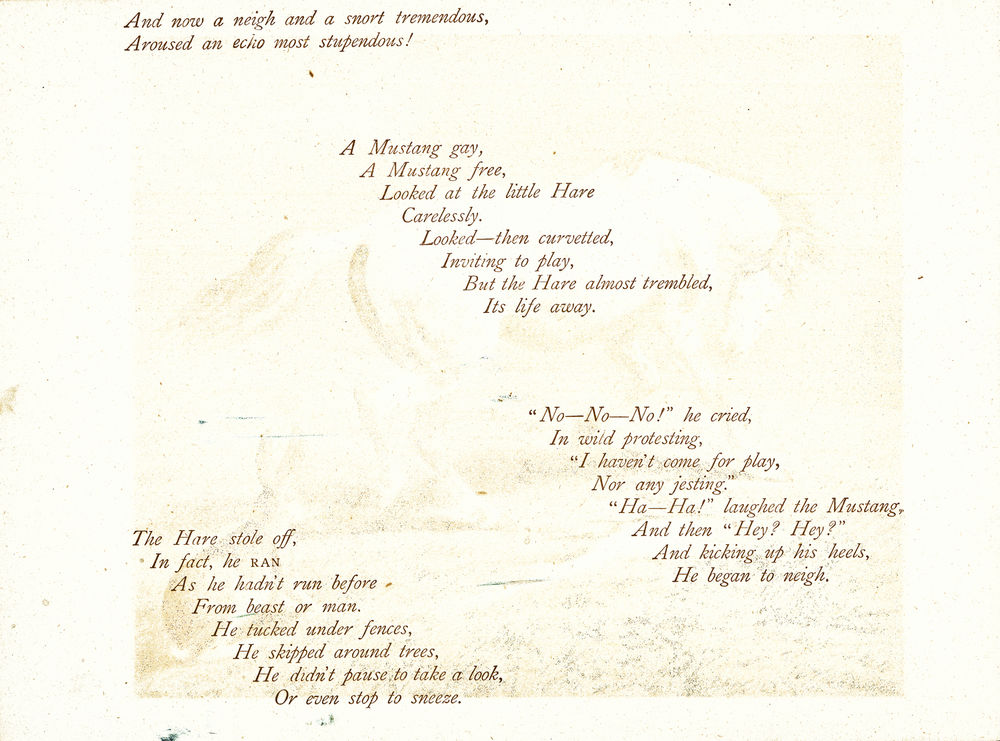 And now a neigh and a snort tremendous,
Aroused an echo most stupendous!
A Mustang gay,
A Mustang free,
Looked at the little Hare
Carelessly.
Looked—then curvetted,
Inviting to play,
But the Hare almost trembled,
Its life away.
“No—No—No!” he cried,
In wild protesting,
“I haven't come for play,
Nor any jesting.”
“Ha—Ha!” laughed the Mustang,
And then “Hey? Hey?”
And kicking up his heels,
He began to neigh.
The Hare stole off,
In fact, he RAN
As he hadn't run before
From beast or man.
He tucked under fences,
He skipped around trees,
He didn't pause to take a look,
Or even stop to sneeze.